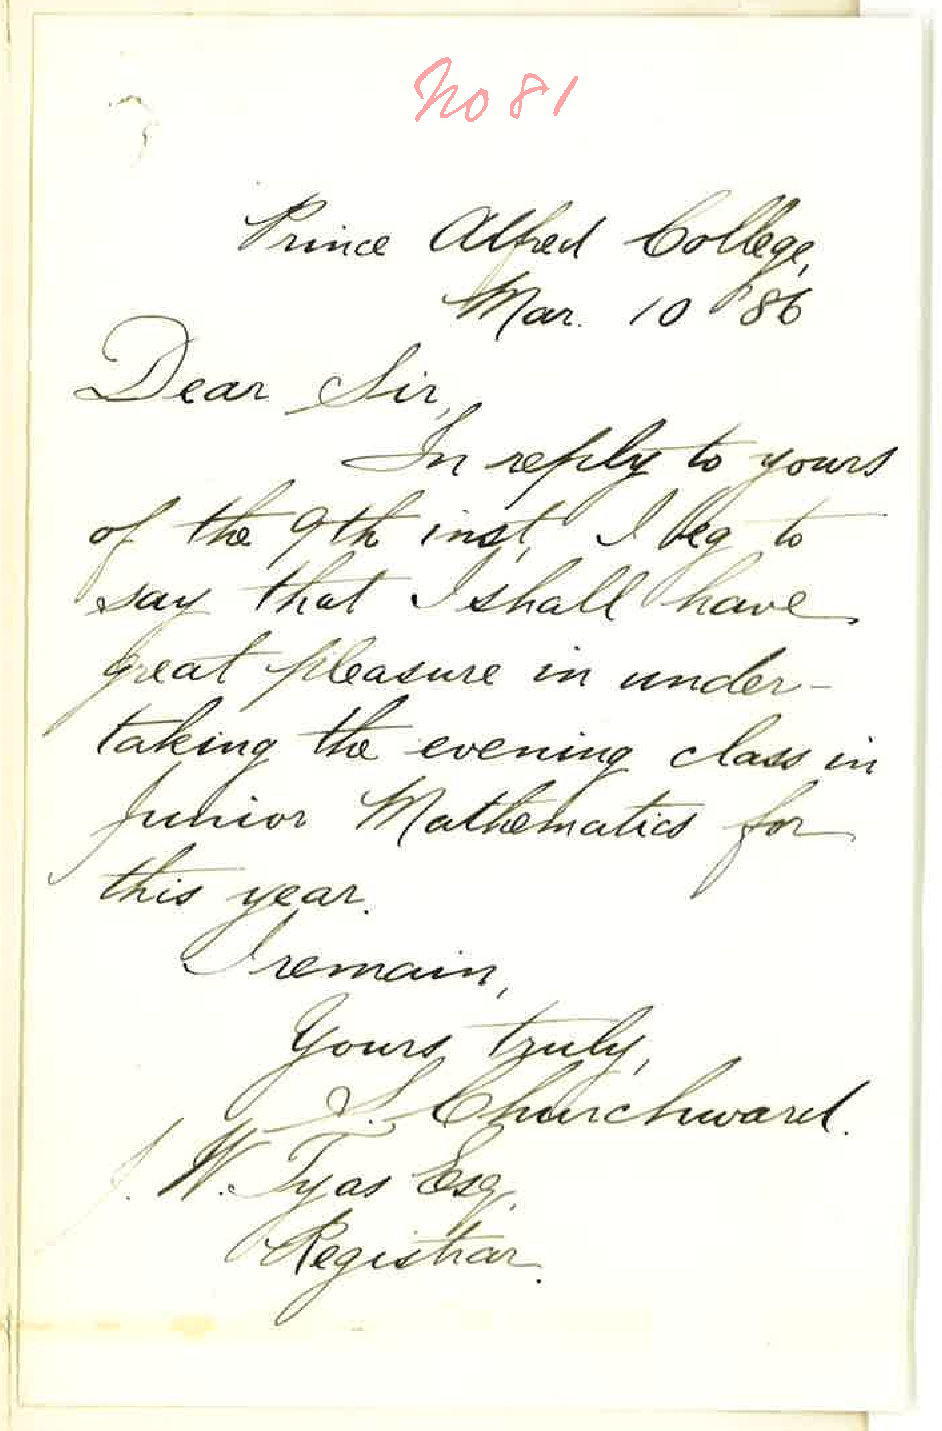 No 81
Prince Alfred College,
Mar. 10 '86
Dear Sir,
In reply to yours
of the 9th inst, I beg to
say that I shall have
great pleasure in under-
taking the evening class in
Junior Mathematics for
this year.
I remain,
Yours truly,
S. Churchward.
J. W. Tyas Esq,
Registrar.